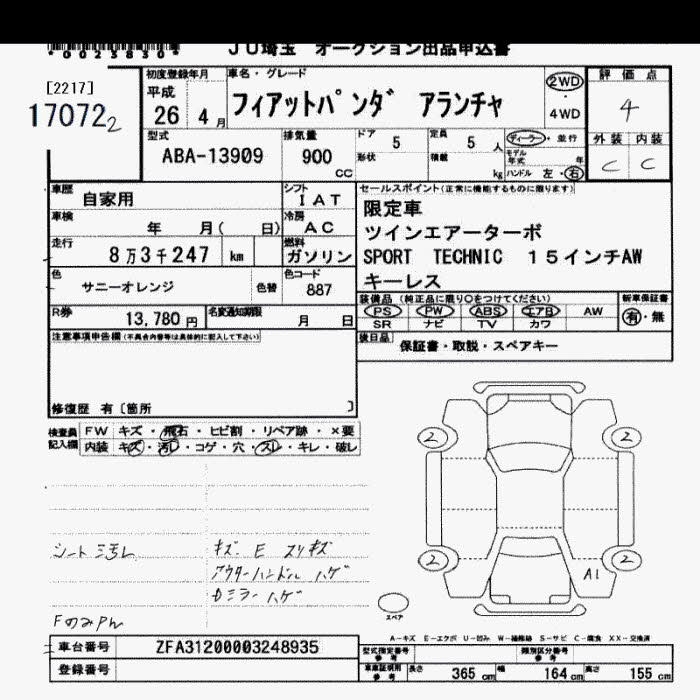 *0023830*
JU埼玉 オークション出品申込書
[2217]
17072 2
初度登録年月
平成
26 4 月
車名・グレード
フィアットパンダ アランチャ
2WD
・
4WD
評価点
4
型式
ABA-13909
排気量
900
CC
ドア 5
形状
定員 5 人
積載 kg
ディーラー・並行
モデル年式 年
ハンドル 左・右
外装 内装
C C
車歴
自家用
シフト
IAT
車検
年 月( 日)
冷房
AC
走行
8万3千247 km
燃料
ガソリン
色
サニーオレンジ 色替
色コード
887
R券
13,780 円
名変通知期限
月 日
セールスポイント(正常に機能するものに限ります)
限定車
ツインエアーターボ
SPORT TECHNIC 15インチAW
キーレス
装備品(純正品に限り○をつけてください)
PS PW ABS エアB AW
SR ナビ TV カワ
新車保証書
有・無
後日品
保証書・取説・スペアキー
注意事項申告欄(不具合内容等は具体的に記入して下さい)
修復歴 有〔箇所 〕
検査員記入欄
FW キズ・飛石・ヒビ割・リペア跡・×要
内装 キズ・汚レ・コゲ・穴・スレ・キレ・破レ
2 2
2 2
A1
スペア
シート三汚レ
キズ E スリキズ
アウターハンドル ハゲ
Dミラーハゲ
FのみPん
A-キズ E-エクボ U-凹み W-補修跡 S-サビ C-腐食 XX-交換済
車台番号
ZFA31200003248935
登録番号
型式指定番号 参考
類別区分番号 参考
車庫証明用 参考
長さ 365 cm 幅 164 cm 高さ 155 cm